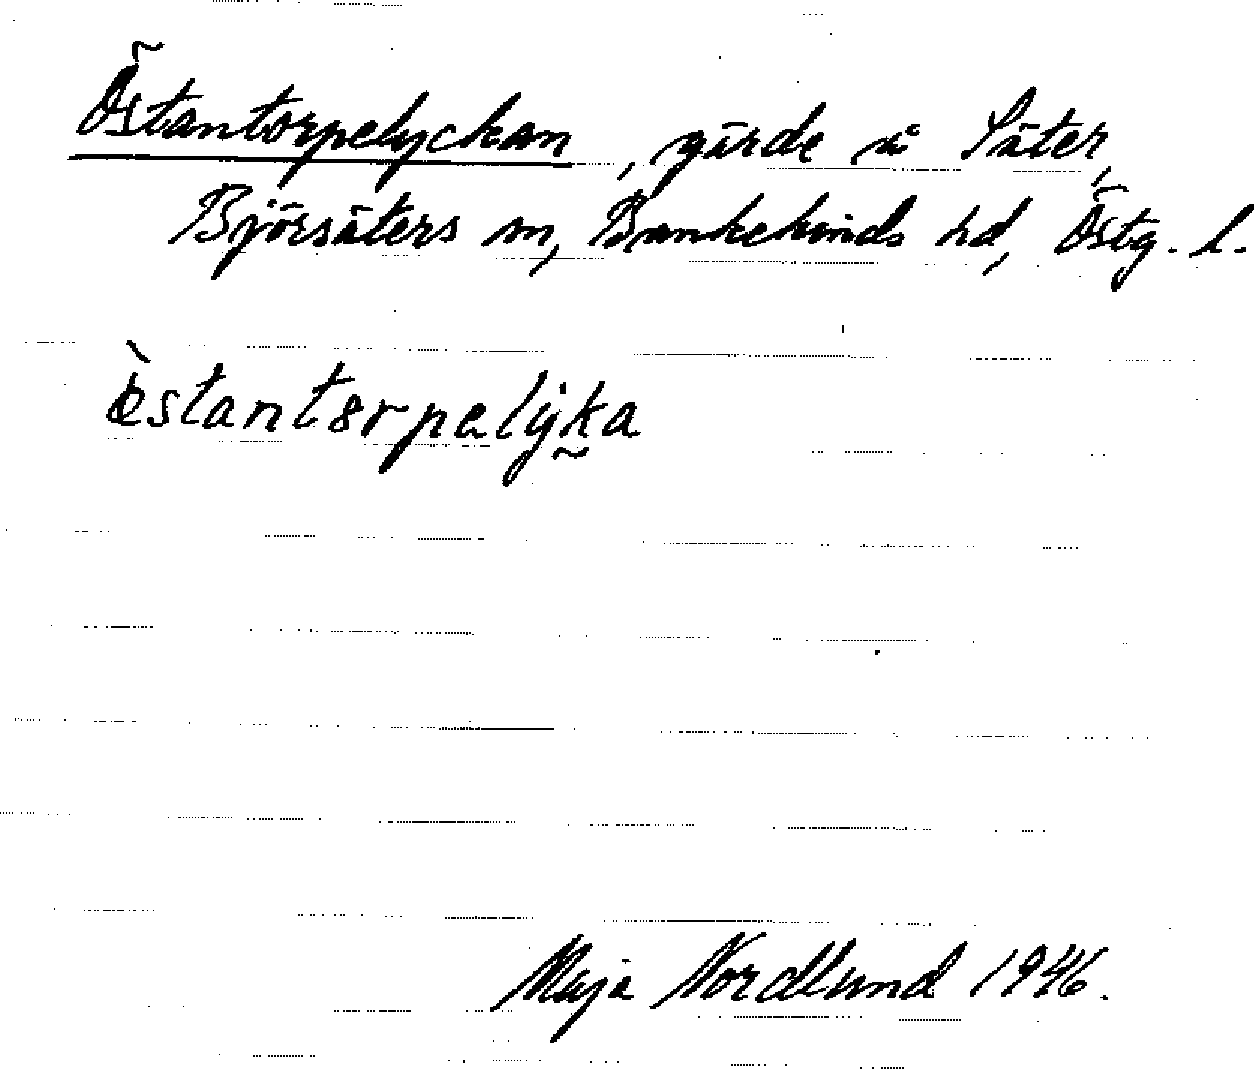 Östantorpelyckan, gärde å Säter,
Björsäters sn, Bankekinds hd, Östg. l.
œ̀stantɔrpəlẏk̰a
Maja Nordlund 1946.